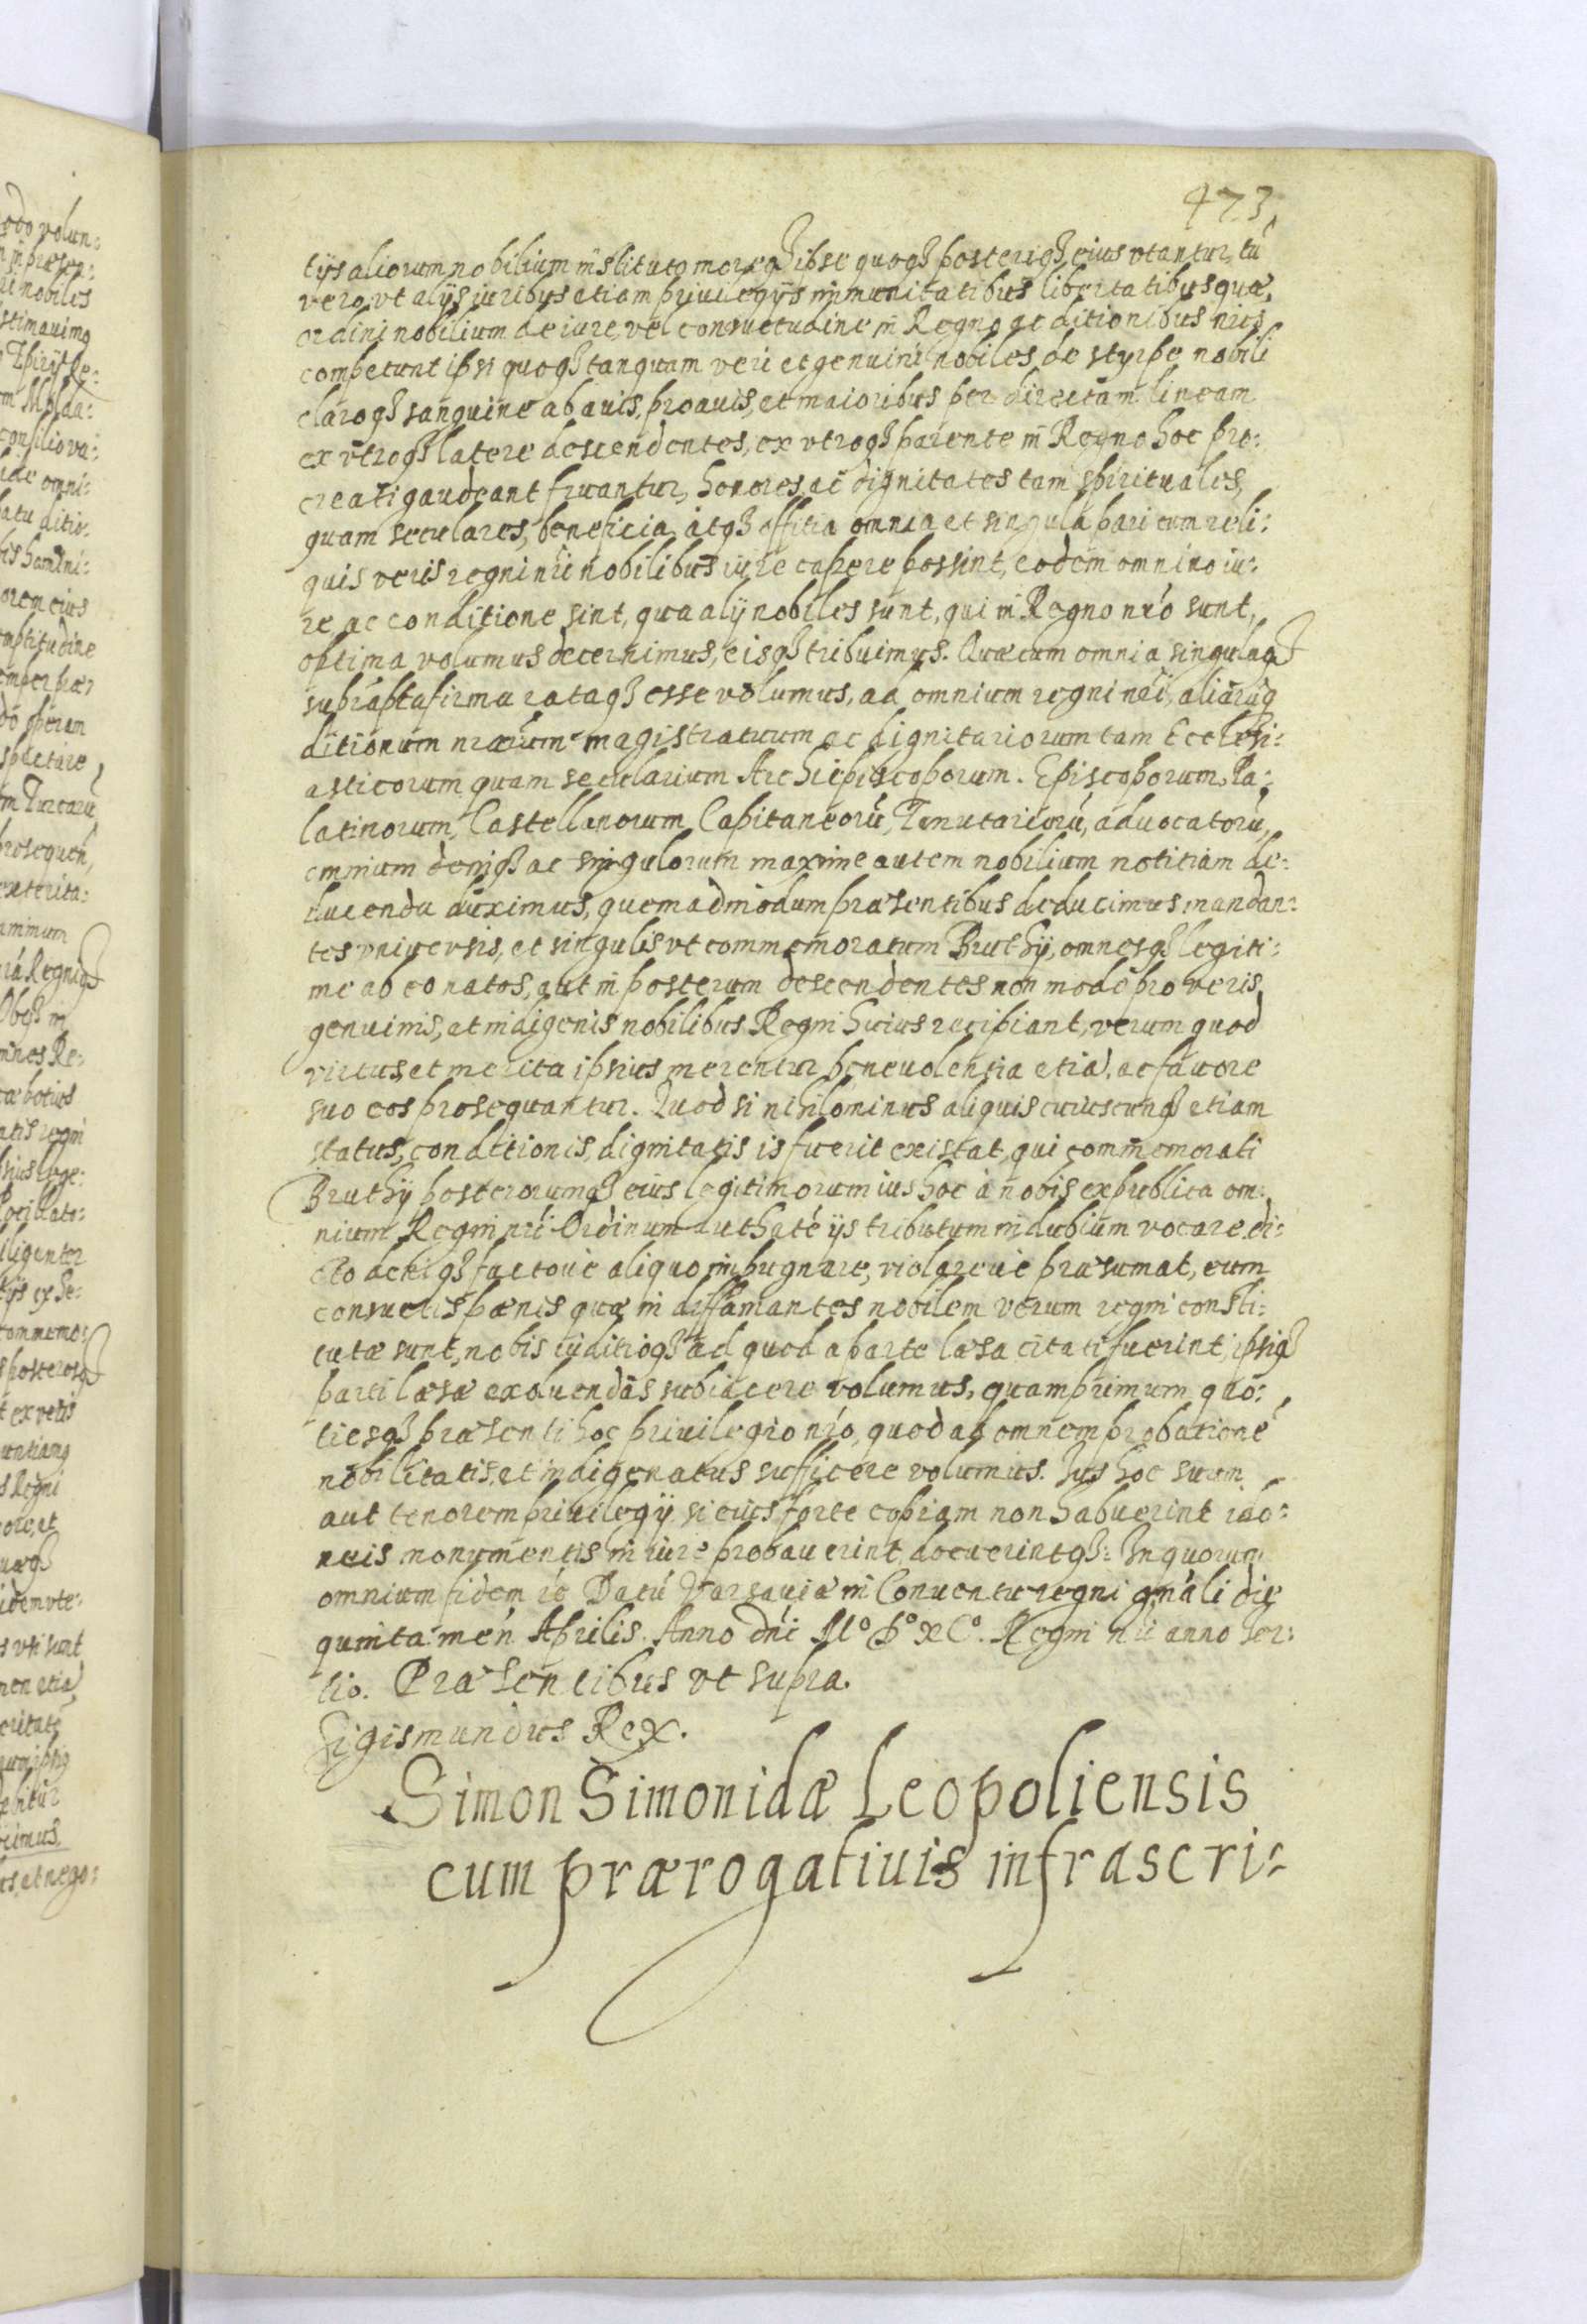 473
tijs aliorum nobilium instituto moreq3 ipse quoq3 posteriq3 eius vtantur, tũ
vero, vt alijs iuribus etiam priuilegijs immunitatibus libertatibus quæ
ordini nobilium de iure, vel consuetudine in Regno ac ditionibus nris
competunt ipsi quoq3 tanquam veri et genuini nobiles de styrpe nobili
claroq3 sanguine ab auis, proauis, et maioribus per directam lineam
ex vtroq3 latere descendentes, ex vtroq3 parente in Regno hoc pro:
creati gaudeant fruantur, honores, ac dignitates tam spirituales,
quam seculares, beneficia, atq3 offitia omnia et singula pari cum reli:
quis veris regni nri nobilibus iure capere possint, eodem omnino iu:
re ac conditione sint, qua alij nobiles sunt, qui in Regno nro sunt,
optima volumus decernimus, eisq3 tribuimus. Quæ cum omnia singulaq3
supraptafirma rataq3 esse volumus, ad omnium regni nri, aliarũq
ditionum nrarum magistratuum ac dignitariorum tam Ecclesi:
asticorum quam secularium Archiepiscoporum. Episcoporum, Pa:
latinorum, Castellanorum Capitaneorũ, Tenutariorũ, aduocatorũ,
omnium deniq3 ac singulorum maxime autem nobilium notitiam de:
ducenda duximus, quemadmodum præsentibus deducimus mandan:
tes vniuersis, et singulis vt commemoratum Bruthij, omnesq3 legiti:
me ab eo natos, aut in posterum descendentes non modo pro veris
genuinis, et indigenis nobilibus Regni huius recipiant, verum quod
virtus, et merita ipsius merentur beneuolentia etiã, ac fauore
suo eos prosequantur. Quod si nihilominus aliquis cuiuscunq3 etiam
status, conditionis, dignitatis is fuerit existat, qui commemorati
Bruthij posterorumq3 eius legitimorum ius hoc à nobis ex publica om:
nium Regni nri Ordinum authate ijs tributum in dubium vocare, di:
cto actuq3 factoue aliquo impugnare, violareue præsumat, eum
consuetis pænis quæ in diffamantes nobilem verum regni consti:
tutæ sunt, nobis iuditioq3 ad quod a parte læsa citati fuerint, ipsiq3
parti læsæ exoluendas subiacere volumus, quamprimum quo:
tiesq3 præsenti hoc priuilegio nro, quod ad omnem probationẽ
nobilitatis, et indigenatus sufficere volumus. Ius hoc suum
aut tenorem priuilegij si eius forte copiam non habuerint ido:
neis monumentis in iure probauerint docuerintq3: In quorum
omnium fidem rc Datũ Varsauiæ in Conuentu regni gnali die
quinta men Aprilis. Anno dni Mº Dº XCº. Regni nri anno ter:
tio. Præsentibus vt supra.
Sigismundus Rex.
Simon Simonidæ Leopoliensis
cum prærogatiuis infrascri: